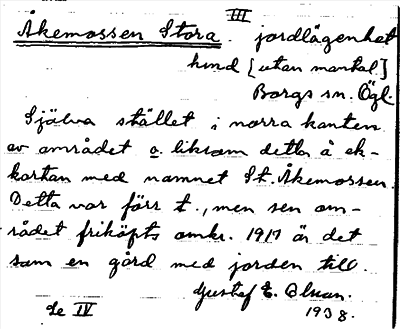 III
Åkemossen Stora. jordlägenhet
hmd [utan mantal]
Borgs sn. Ögl.
Själva stället i norra kanten
av området o. liksom detta å ek-
kartan med namnet St. Åkemossen.
Detta var förr t., men sen om-
rådet friköpts omkr. 1917 är det
som en gård med jorden till.
Gustef E. Olsson.
Se IV 1938.